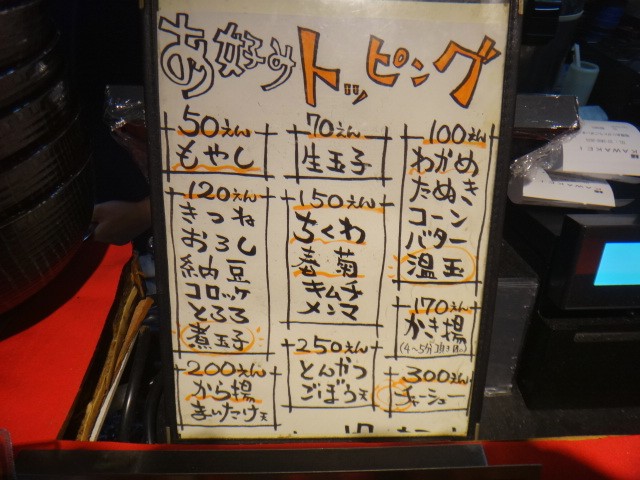 お好みトッピング
50えん
もやし
70えん
生玉子
100えん
わかめ
たぬき
コーン
バター
温玉
120えん
きつね
おろし
納豆
コロッケ
とろろ
煮玉子
150えん
ちくわ
春菊
キムチ
メンマ
170えん
かき揚
200えん
から揚
まいたけ天
250えん
とんかつ
ごぼう天
300えん
チャーシュー